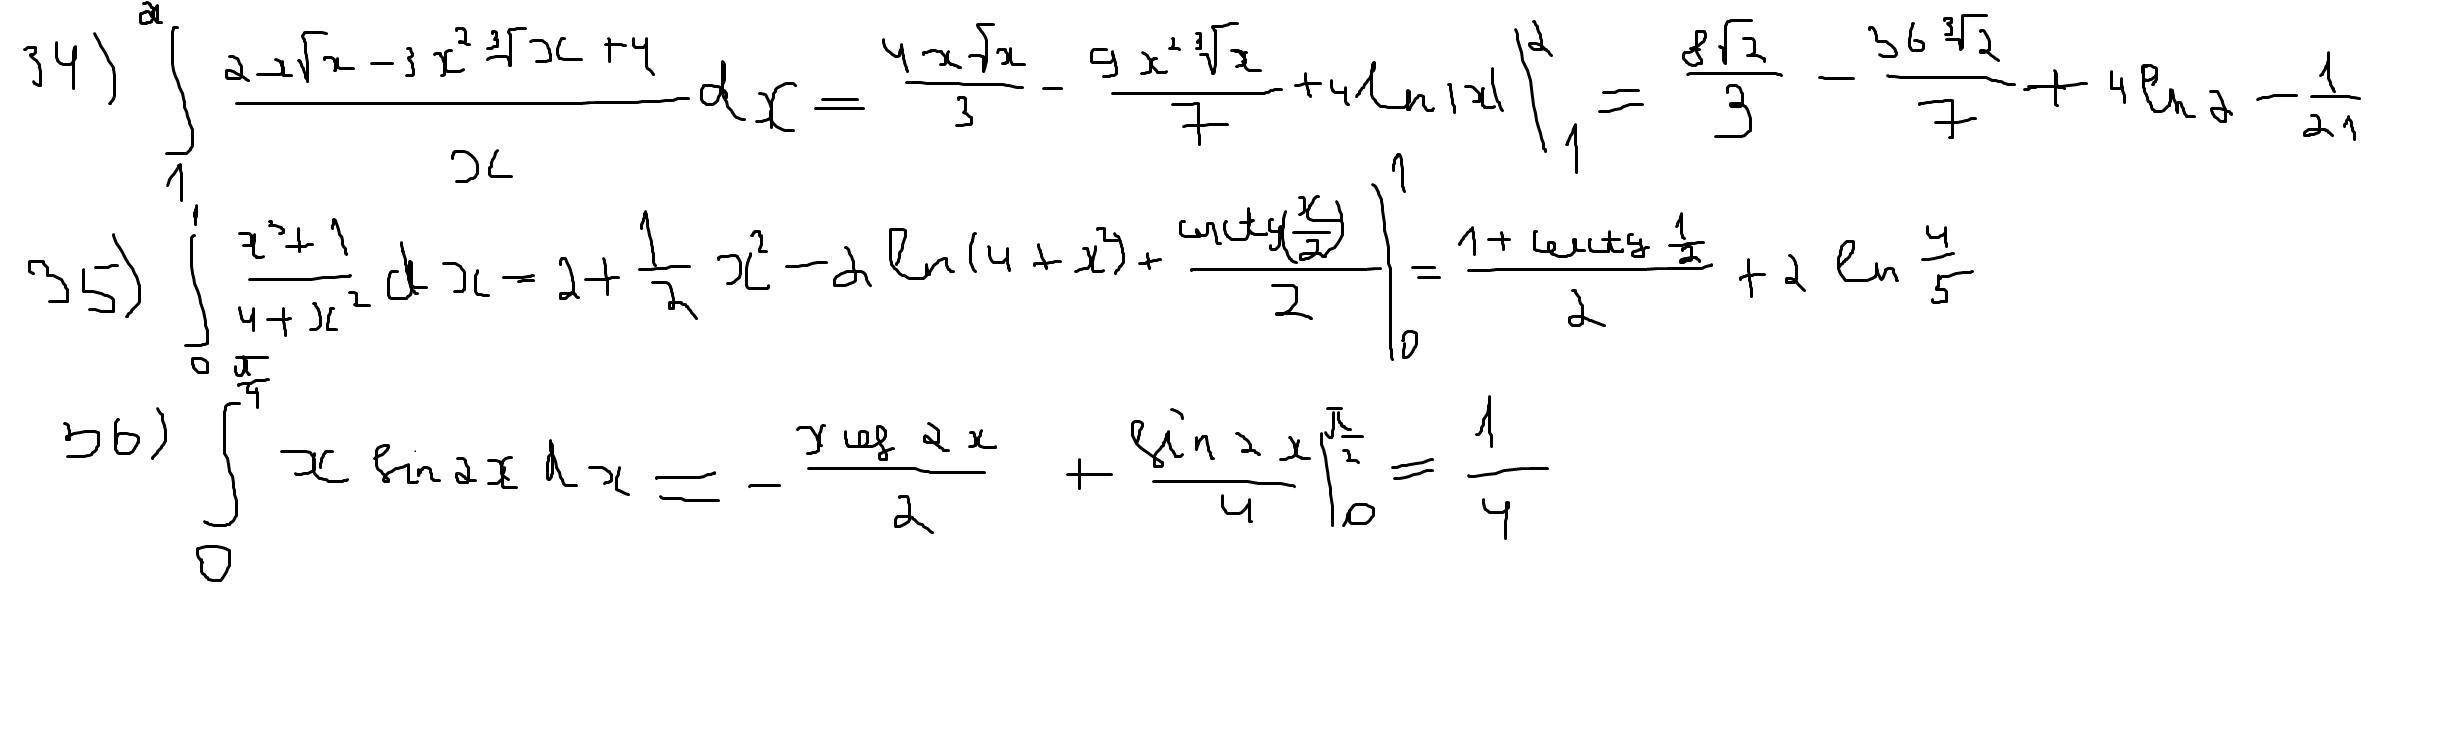 34) ∫₁² (2x√x − 3x² ∛x + 4)/x dx = 4x√x/3 − 9x² ∛x/7 + 4 ln|x| |₁² = 8√2/3 − 36∛2/7 + 4 ln 2 − 1/21
35) ∫₀¹ (x³ + 1)/(4 + x²) dx = 2 + 1/2 x² − 2 ln(4 + x²) + arctg(x/2)/2 |₀¹ = (1 + arctg 1/2)/2 + 2 ln 4/5
36) ∫₀^(π/4) x sin 2x dx = − x cos 2x/2 + sin 2x/4 |₀^(π/2) = 1/4